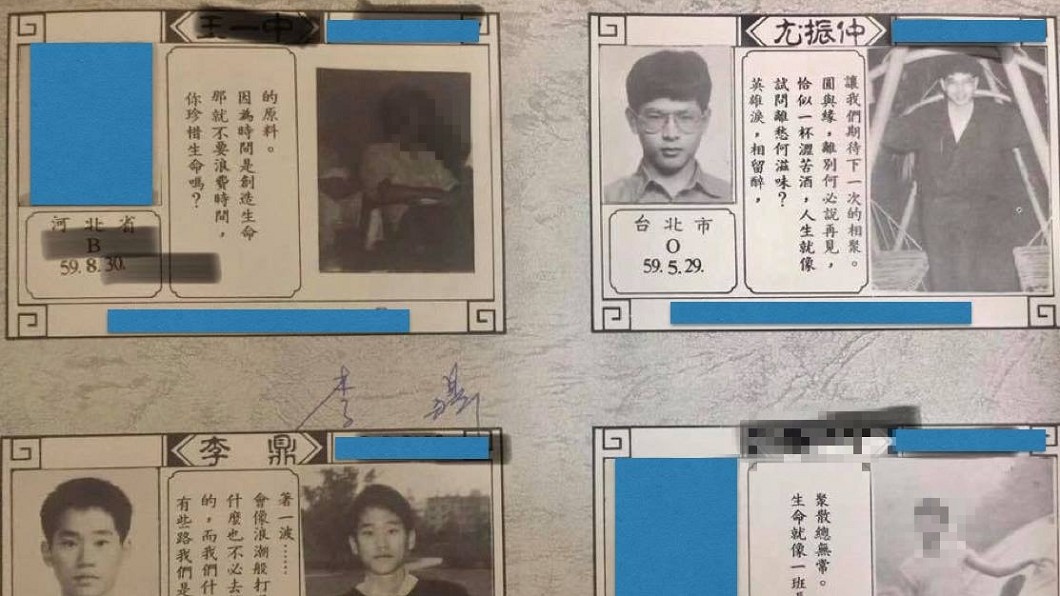 王一中
你珍惜生命嗎？
那就不要浪費時間，
因為時間是創造生命
的原料。
河北省
B
59.8.30.
尤振仲
英雄淚，相留醉，
試問離愁何滋味？
恰似一杯澀苦酒，人生就像
圓與緣，離別何必說再見，
讓我們期待下一次的相聚。
台北市
O
59.5.29.
李鼎
李鼎
有些路我們是
的，而我們什
什麼也不必去
會像浪潮般打
著一波……
生命就像一班
聚散總無常。